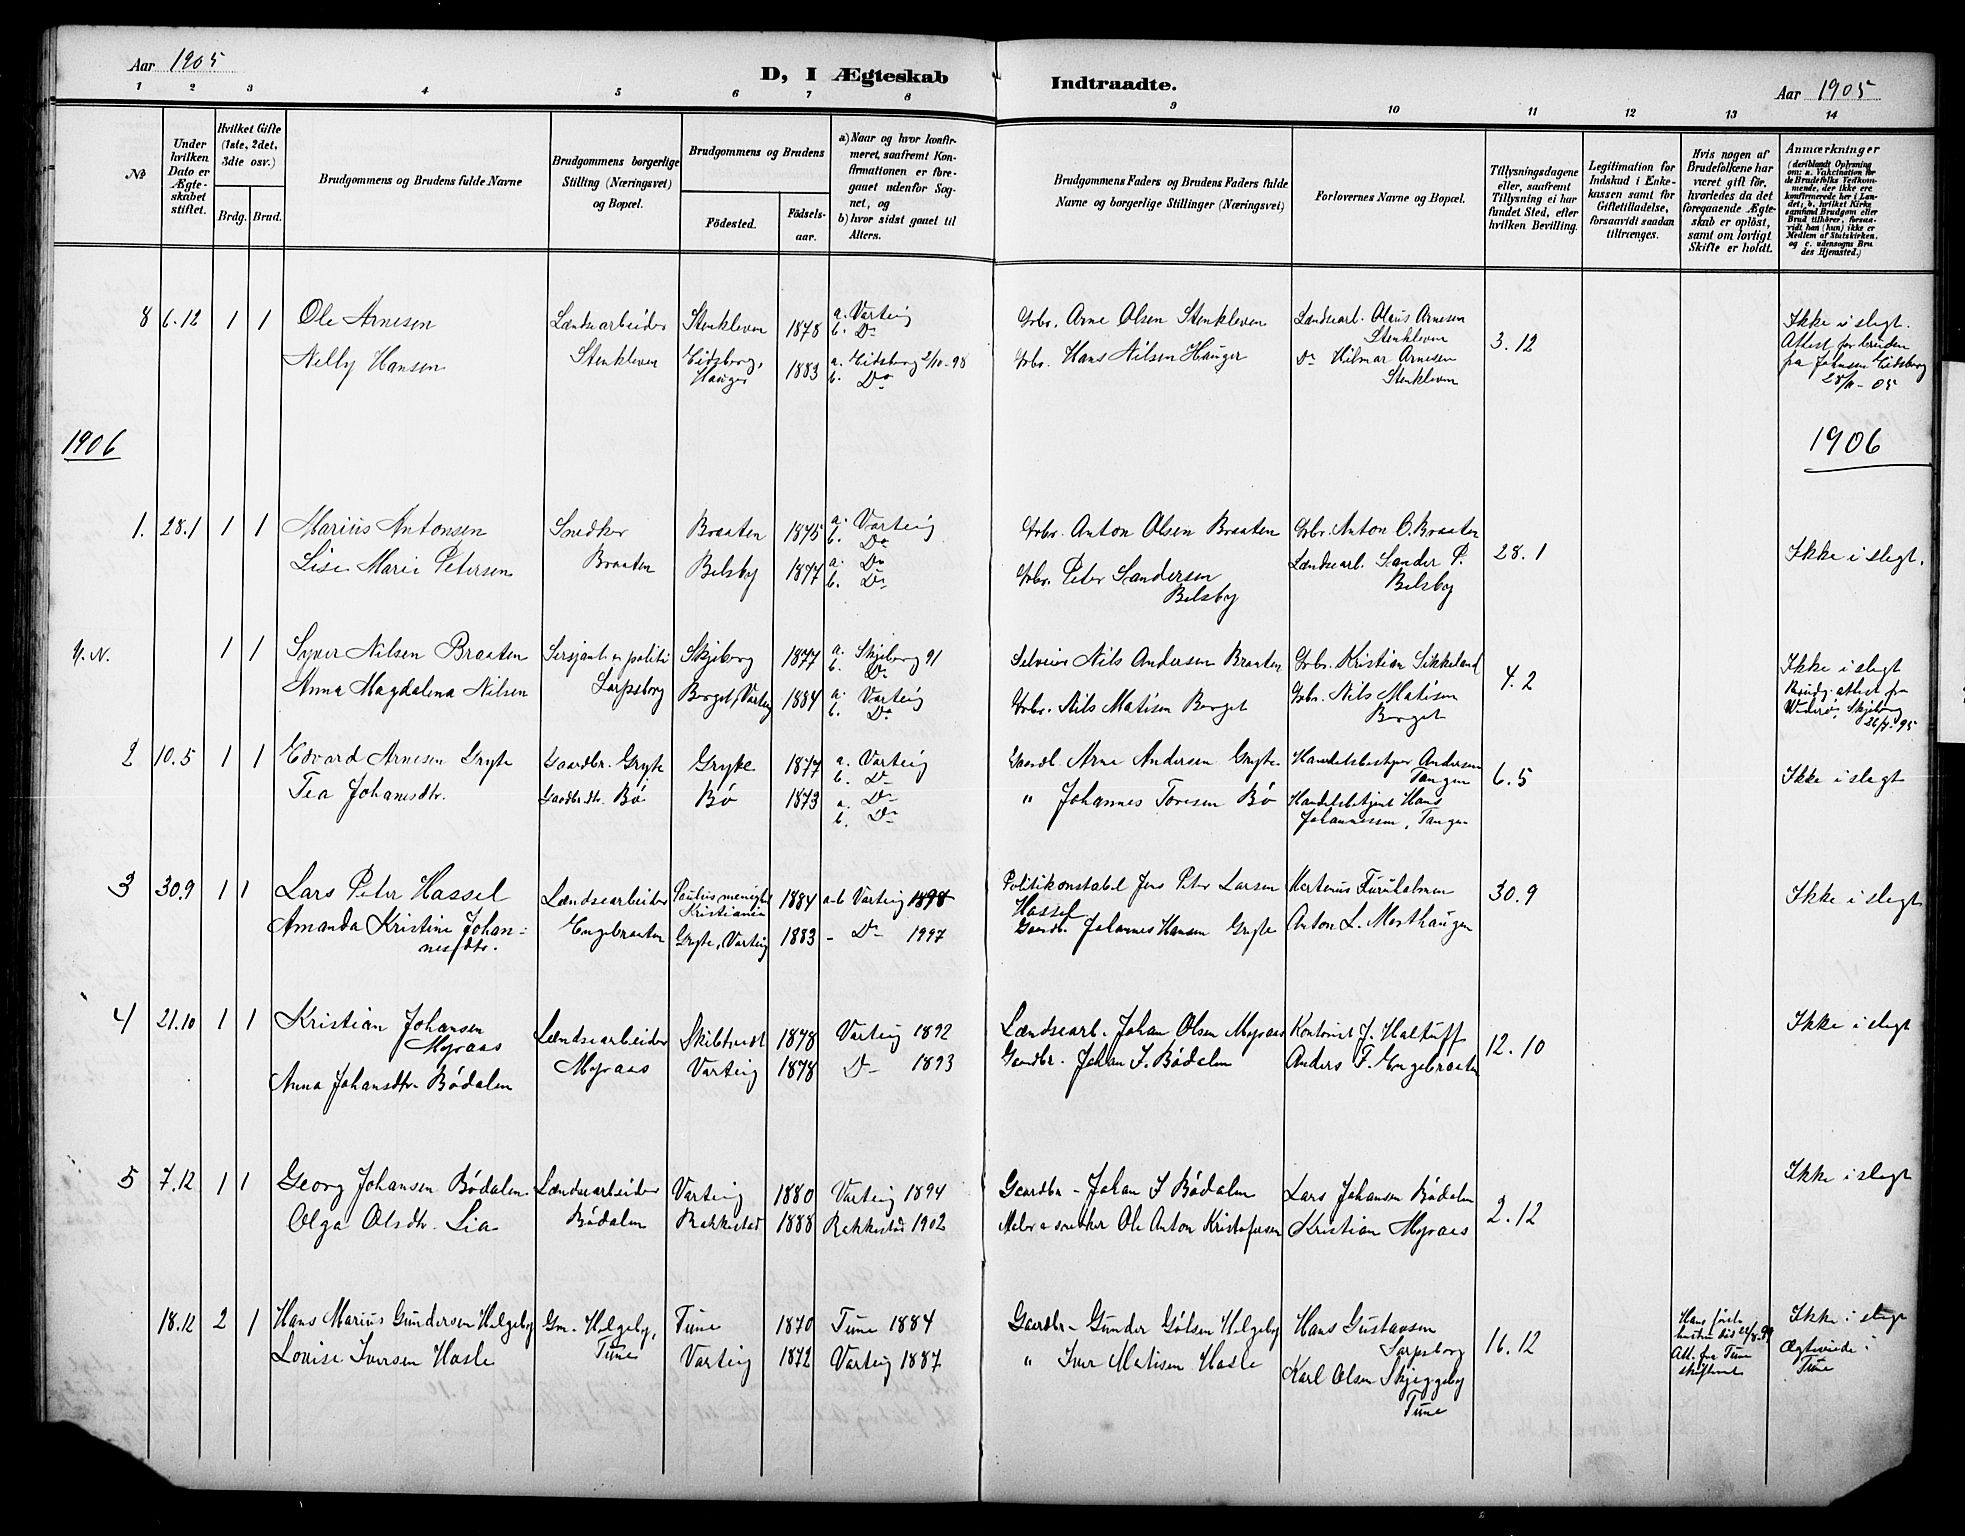 Aar 1905
D, I Ægteskab Indtraadte.
Aar 1905
1 2 3 4 5 6 7 8 9 10 11 12 13 14
No
Under hvilken Dato er Ægteskabet stiftet.
Hvilket Gifte (1ste, 2det, 3die osv.)
Brdg. Brud.
Brudgommens og Brudens fulde Navne
Brudgommens borgerlige Stilling (Næringsvei) og Bopæl.
Brudgommens og Brudens
Fødested. Fødsels-aar.
a) Naar og hvor konfirmeret, saafremt Konfirmationen er foregaaet udenfor Sognet, og
b) hvor sidst gaaet til Alters.
Brudgommens Faders og Brudens Faders fulde Navne og borgerlige Stillinger (Næringsvei)
Forlovernes Navne og Bopæl.
Tillysningsdagene eller, saafremt Tillysning ei har fundet Sted, efter hvilken Bevilling.
Legitimation for Indskud i Enkekassen samt for Giftetilladelse, forsaavidt saadan tiltrænges.
Hvis nogen af Brudefolkene har været gift før, hvorledes da det foregaaende Ægteskab er opløst, samt om lovligt Skifte er holdt.
Anmærkninger (deriblandt Oplysning om: a. Vakcination for de Brudefolks Vedkommende, der ikke ere konfirmerede her i Landet; b. hvilket Kirkesamfund Brudgom eller Brud tilhører, forsaavidt han (hun) ikke er Medlem af Statskirken, og c. udensogns Brudes Hjemsted.)
8 6.12 1 1 Ole Arnesen Lændsearbeider Stenkleven 1878 a. Varteig b. Do Gbr. Arne Olsen Stenkleven Landsearl. Olaus Arnesen Stenkleven 3.12 Ikke i slegt.
Nelly Hansen Stenkleven Eidsberg, Hauger 1883 a. Eidsberg 2/10-98 b. Do Gbr. Hans Nilsen Hauger Do Hilmar Arnesen Stenkleven Attest for bruden fra Johnsen Eidsberg 28/11-05
1906 1906
1. 28.1 1 1 Marius Antonsen Snedker Braaten 1875 a. Varteig b. Do Gbr. Anton Olsen Braaten Gbr. Anton O. Braaten 28.1 Ikke i slegt.
Lise Marie Petersen Braaten Belsby 1877 a. Do b. Do Gbr. Peter Sandersen Belsby Lændsearl. Sander P. Belsby
1 1 Syver Nilsen Braaten Sersjant i politi Skjeberg 1877 a. Skjeberg 91 b. Do Selveier Nils Andersen Braaten Gbr. Kristian Sikkeland 4.2 Ikke i slegt
Anna Magdalena Nilsen Sarpsborg Borget, Varteig 1884 a. Varteig b. Do Gbr. Nils Matisen Borget Gbr. Nils Matisen Borget Brudg. attest fra Skjeberg
2 10.5 1 1 Edvard Arnesen Gryte Gaardbr. Gryte Gryte 1877 a. Varteig b. Do Gaardb. Arne Andersen Gryte Handelsbestyrer Andersen Tangen 6.5 Ikke i slegt
Tea Johannesdtr. Gaardbr.dtr. Bø Bø 1873 a. Do b. Do " Johannes Toresen Bø Handelsbetjent Hans Johannessen, Tangen
3 30.9 1 1 Lars Peter Hassel Lændsearbeider Paulus menighed Kristiania 1884 a-b Varteig 1898 Politikonstabel Jens Peter Larsen Hassel Martenus Furulalmen 30.9 Ikke i slegt
Amanda Kristine Johannesdtr. Engebraaten Gryte, Varteig 1883 - Do 1997 Gaardb. Johannes Hansen Gryte Anton L. Morthaugen
4 21.10 1 1 Kristian Johansen Myraas Lændsearbeider Skibtvedt 1878 Varteig 1892 Lændsearb. Johan Olsen Myraas Kontorist J. Haltuff 12.10 Ikke i slegt
Anna Johansdtr. Bødalen Myraas Varteig 1878 Do 1893 Gaardbr. Johan J. Bødalen Anders T. Engebraaten
5 7.12 1 1 Georg Johansen Bødalen Lændsearbeider Varteig 1880 Varteig 1894 Gaardbr - Johan J Bødalen Lars Johansen Bødalen 2.12 Ikke i slegt
Olga Olsdtr. Lia Bødalen Rakkestad 1888 Rakkestad 1902 Maler & snedker Ole Anton Kristofersen Kristian Myraas
18.12 2 1 Hans Marius Gundersen Helgeby Gm. Helgeby, Tune Tune 1870 Tune 1884 Gaardbr - Gunder Gølsen Helgeby Hans Gustavsen Sarpsborg 16.12 Hans første hustru død 22/8.99 Att. fra Tune skifteret Ikke i slegt
Lovise Iversen Hasle Varteig 1872 Varteig 1887 " Iver Matisen Hasle Karl Olsen Skjeggeby Tune Ægteviede i Tune